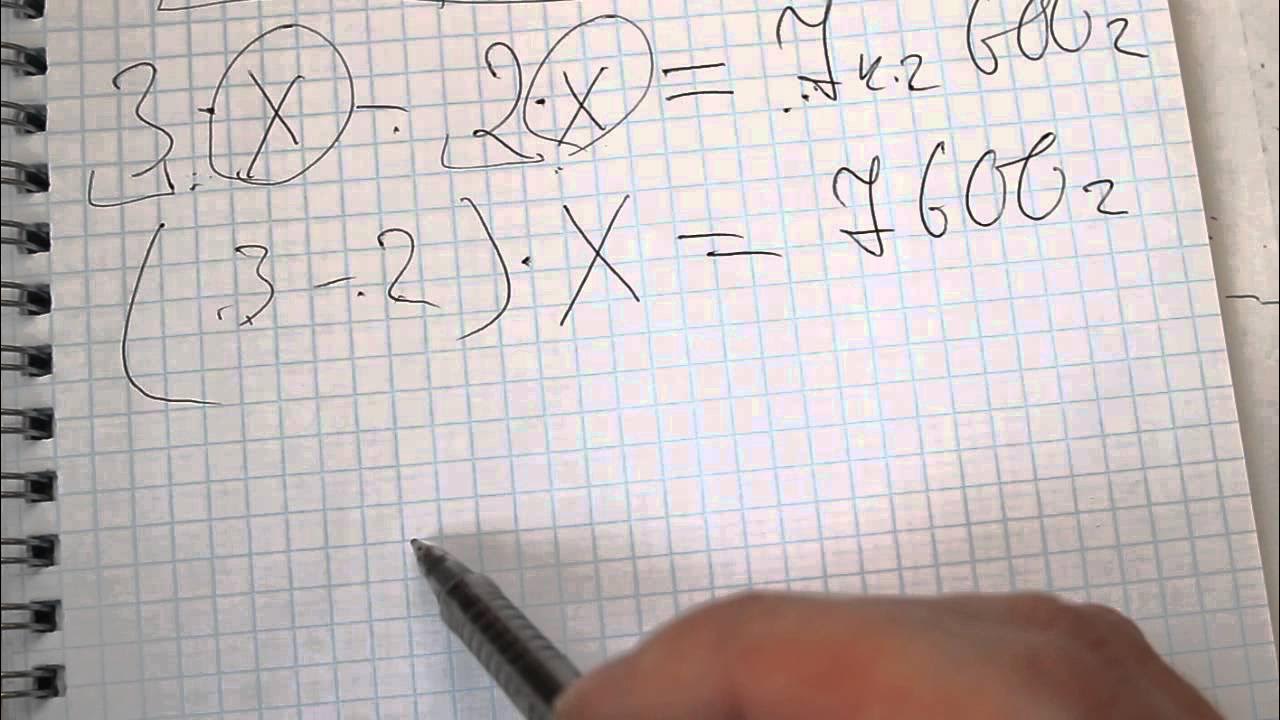 3·X - 2·X = 7кг 600г
(3 - 2)·X = 7600г